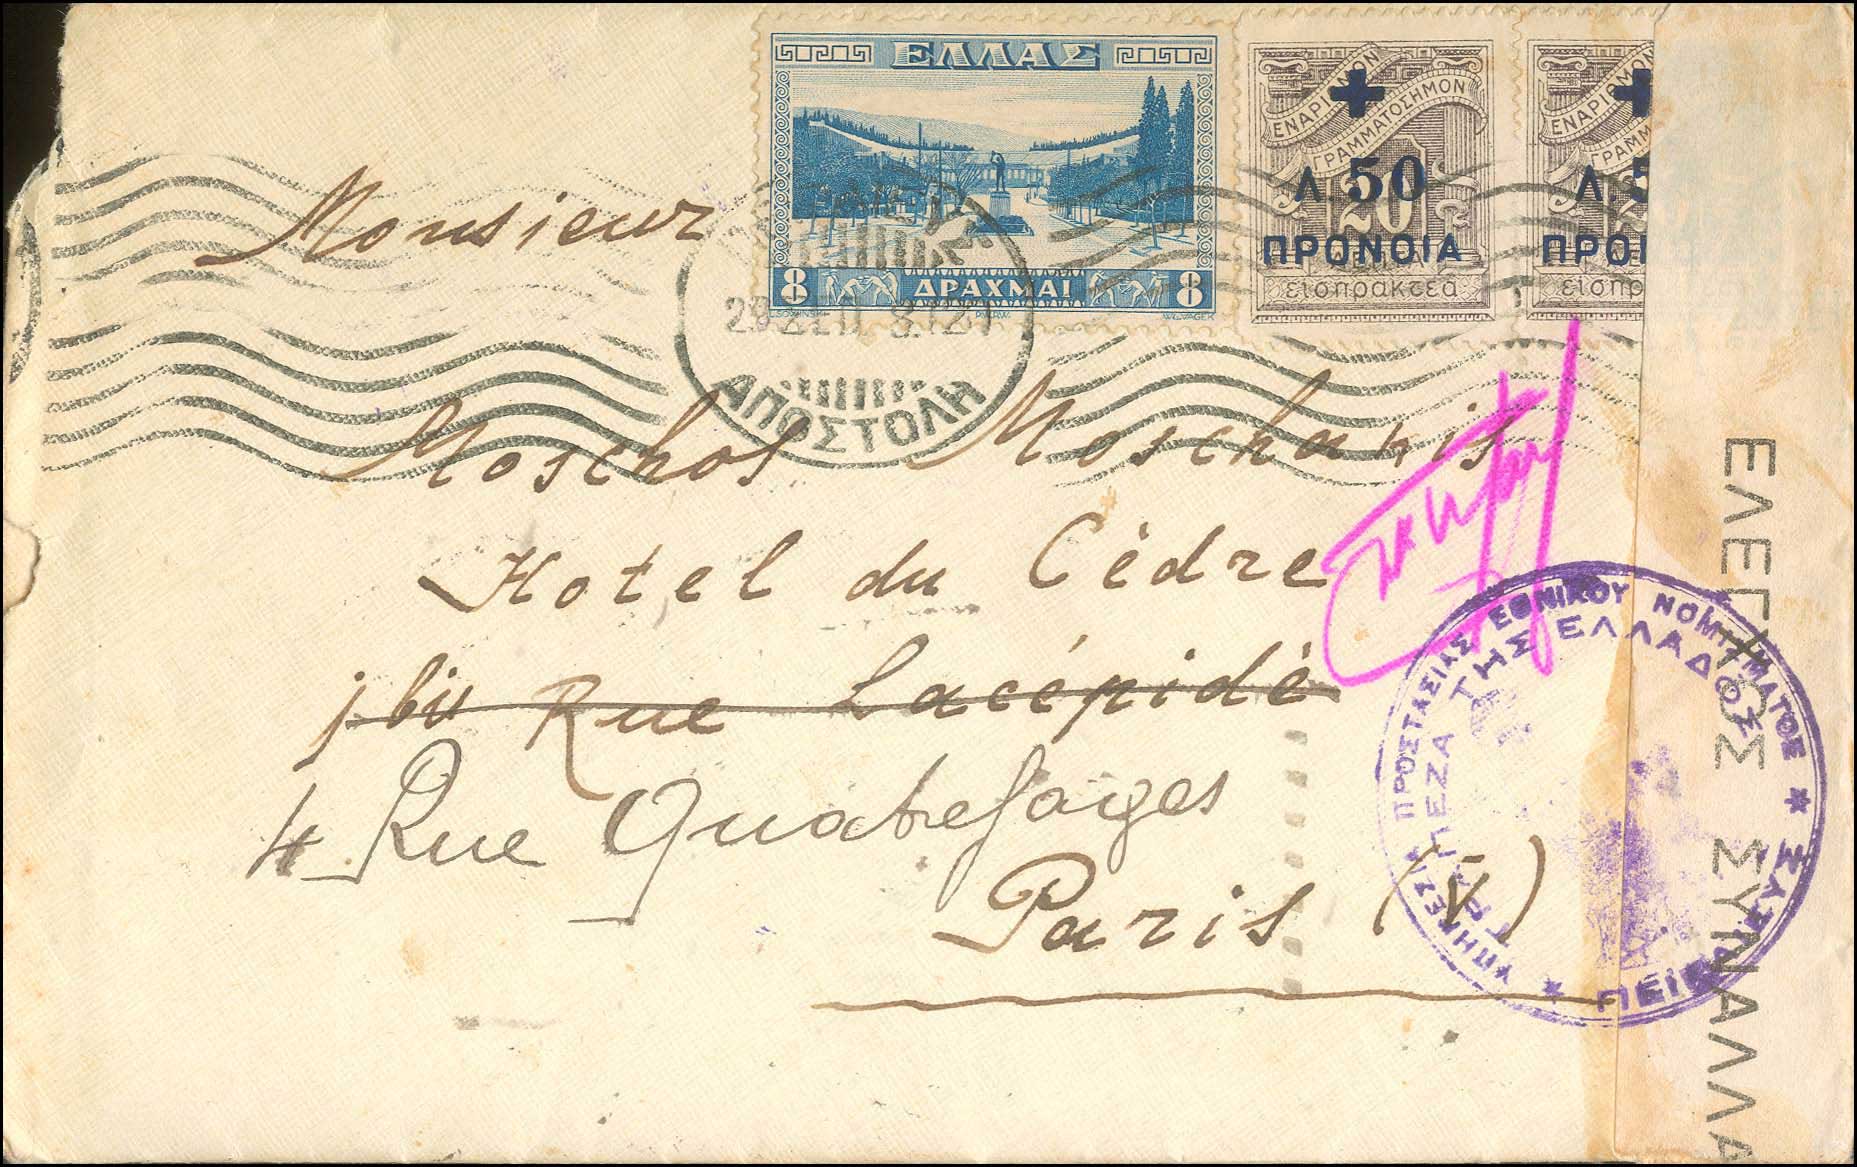 ΕΛΛΑΣ
8 ΔΡΑΧΜΑΙ 8
ΕΝΑΡΙΘΜΟΝ
ΓΡΑΜΜΑΤΟΣΗΜΟΝ
Λ 50
20
ΠΡΟΝΟΙΑ
ΛΕΠΤΑ
εισπρακτεα
ΕΝΑΡΙΘΜΟΝ
ΓΡΑΜΜΑ
Λ. 5
ΠΡΟΙ
εισπρ
ΑΠΟΣΤΟΛΗ
Monsieur
Moschos Moschanis
Hotel du Cèdre
1 bis Rue Lacépidè
4 Rue Quatrefages
Paris (V)
ΥΠΗΡΕΣΙΑ ΠΡΟΣΤΑΣΙΑΣ ΕΘΝΙΚΟΥ ΝΟΜΙΣΜΑΤΟΣ
ΤΡΑΠΕΖΑ ΤΗΣ ΕΛΛΑΔΟΣ
ΕΛΕΓΧΟΣ ΣΥΝΑΛΛΑ